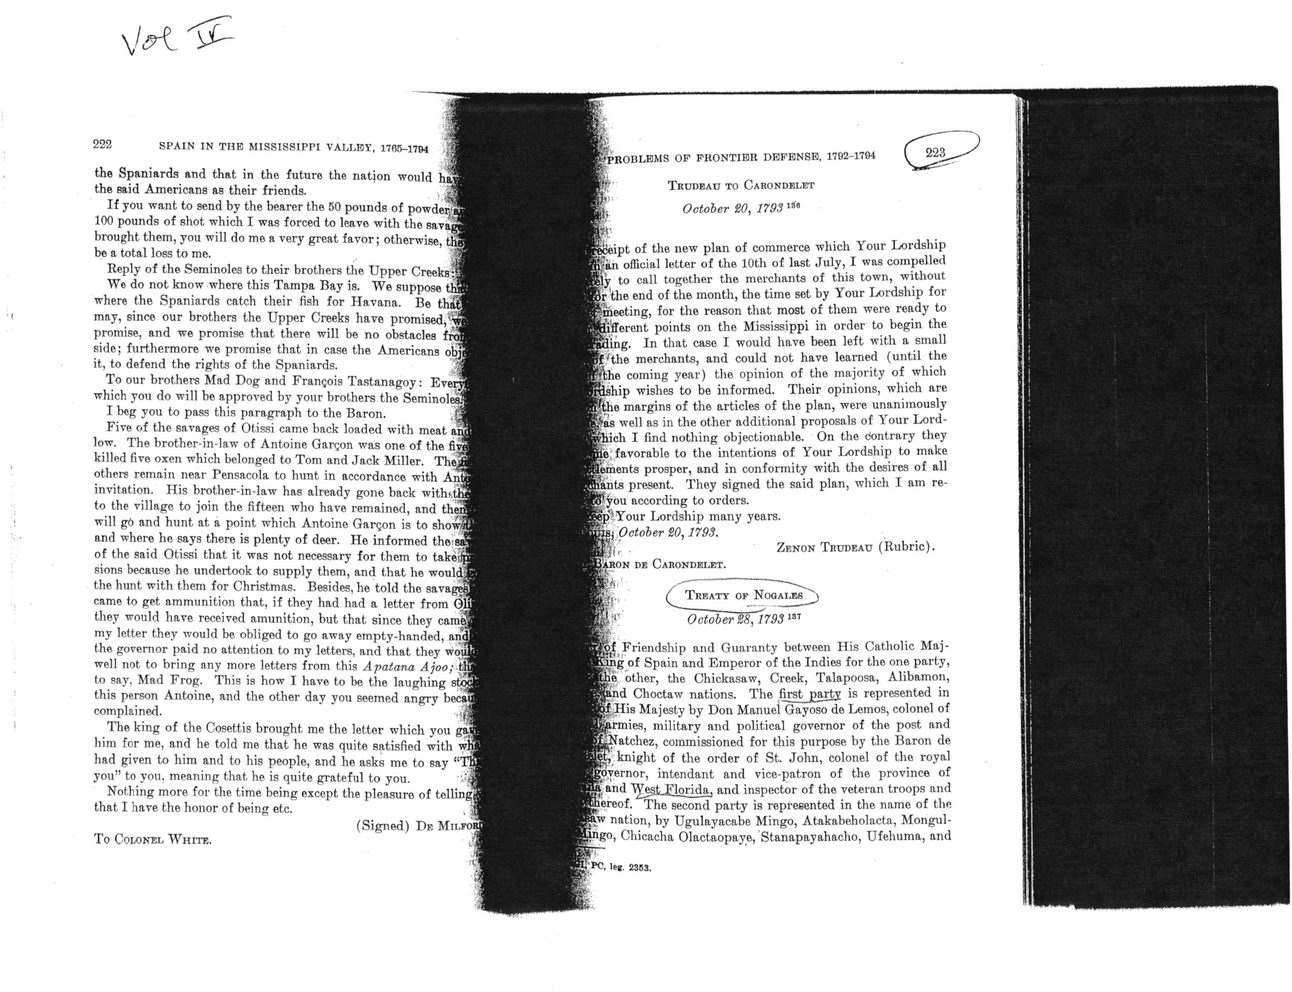 Vol IV
222 SPAIN IN THE MISSISSIPPI VALLEY, 1765–1794
the Spaniards and that in the future the nation would
the said Americans as their friends.
If you want to send by the bearer the 50 pounds of powder
100 pounds of shot which I was forced to leave with the
brought them, you will do me a very great favor; otherwise,
be a total loss to me.
Reply of the Seminoles to their brothers the Upper Creeks:
We do not know where this Tampa Bay is. We suppose
where the Spaniards catch their fish for Havana. Be that
may, since our brothers the Upper Creeks have promised, we
promise, and we promise that there will be no obstacles
side; furthermore we promise that in case the Americans
it, to defend the rights of the Spaniards.
To our brothers Mad Dog and François Tastanagoy: Every
which you do will be approved by your brothers the Seminoles.
I beg you to pass this paragraph to the Baron.
Five of the savages of Otissi came back loaded with meat and
low. The brother-in-law of Antoine Garçon was one of the five
killed five oxen which belonged to Tom and Jack Miller. The
others remain near Pensacola to hunt in accordance with
invitation. His brother-in-law has already gone back with the
to the village to join the fifteen who have remained, and
will go and hunt at a point which Antoine Garçon is to show
and where he says there is plenty of deer. He informed the
of the said Otissi that it was not necessary for them to take
sions because he undertook to supply them, and that he would
the hunt with them for Christmas. Besides, he told the
came to get ammunition that, if they had had a letter from
they would have received amunition, but that since they came
my letter they would be obliged to go away empty-handed, and
the governor paid no attention to my letters, and that they
well not to bring any more letters from this Apatana Ajoo;
to say, Mad Frog. This is how I have to be the laughing
this person Antoine, and the other day you seemed angry
complained.
The king of the Cosettis brought me the letter which you
him for me, and he told me that he was quite satisfied with
had given to him and to his people, and he asks me to say
you” to you, meaning that he is quite grateful to you.
Nothing more for the time being except the pleasure of telling
that I have the honor of being etc.
(Signed) DE MILFOR
TO COLONEL WHITE.
PROBLEMS OF FRONTIER DEFENSE, 1792–1794 223
TRUDEAU TO CARONDELET
October 20, 1793 136
receipt of the new plan of commerce which Your Lordship
an official letter of the 10th of last July, I was compelled
to call together the merchants of this town, without
the end of the month, the time set by Your Lordship for
meeting, for the reason that most of them were ready to
different points on the Mississippi in order to begin the
ading. In that case I would have been left with a small
the merchants, and could not have learned (until the
the coming year) the opinion of the majority of which
rdship wishes to be informed. Their opinions, which are
the margins of the articles of the plan, were unanimously
as well as in the other additional proposals of Your Lord-
which I find nothing objectionable. On the contrary they
favorable to the intentions of Your Lordship to make
lements prosper, and in conformity with the desires of all
hants present. They signed the said plan, which I am re-
you according to orders.
Your Lordship many years.
October 20, 1793.
ZENON TRUDEAU (Rubric).
BARON DE CARONDELET.
TREATY OF NOGALES
October 28, 1793 137
of Friendship and Guaranty between His Catholic Maj-
King of Spain and Emperor of the Indies for the one party,
the other, the Chickasaw, Creek, Talapoosa, Alibamon,
and Choctaw nations. The first party is represented in
of His Majesty by Don Manuel Gayoso de Lemos, colonel of
armies, military and political governor of the post and
Natchez, commissioned for this purpose by the Baron de
let, knight of the order of St. John, colonel of the royal
governor, intendant and vice-patron of the province of
and West Florida, and inspector of the veteran troops and
thereof. The second party is represented in the name of the
aw nation, by Ugulayacabe Mingo, Atakabeholacta, Mongul-
Mingo, Chicacha Olactaopaye, Stanapayahacho, Ufehuma, and
PC, leg. 2353.